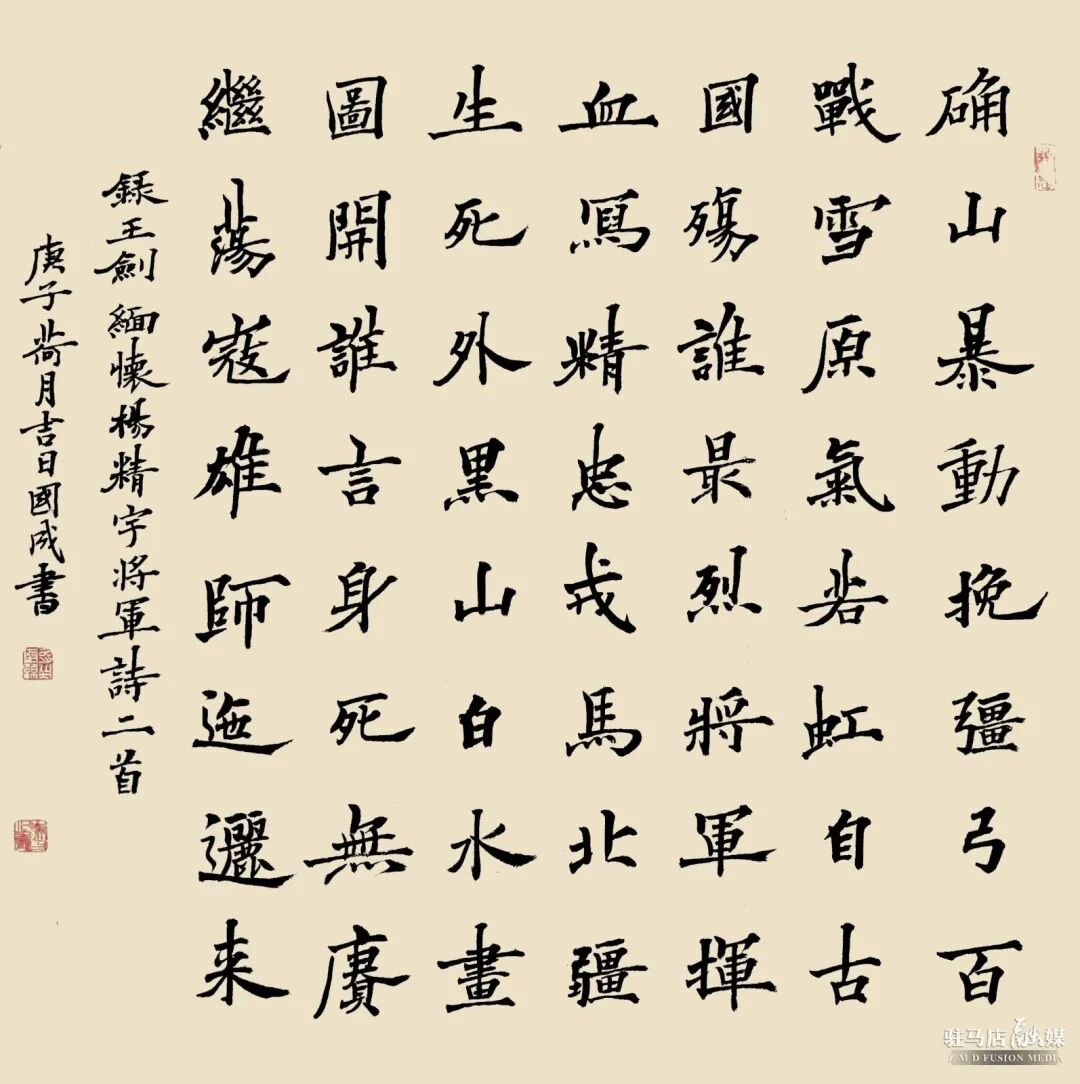 确山暴動挽彊弓百
戰雪原氣若虹自古
國殤誰最烈將軍揮
血寫精忠戎馬北疆
生死外黑山白水畫
圖開誰言身死無賡
繼蕩寇雄師迤邐来
録王劍緬懷楊精宇將軍詩二首
庚子荷月吉日國成書
驻马店融媒
ZMD FUSION MEDIA